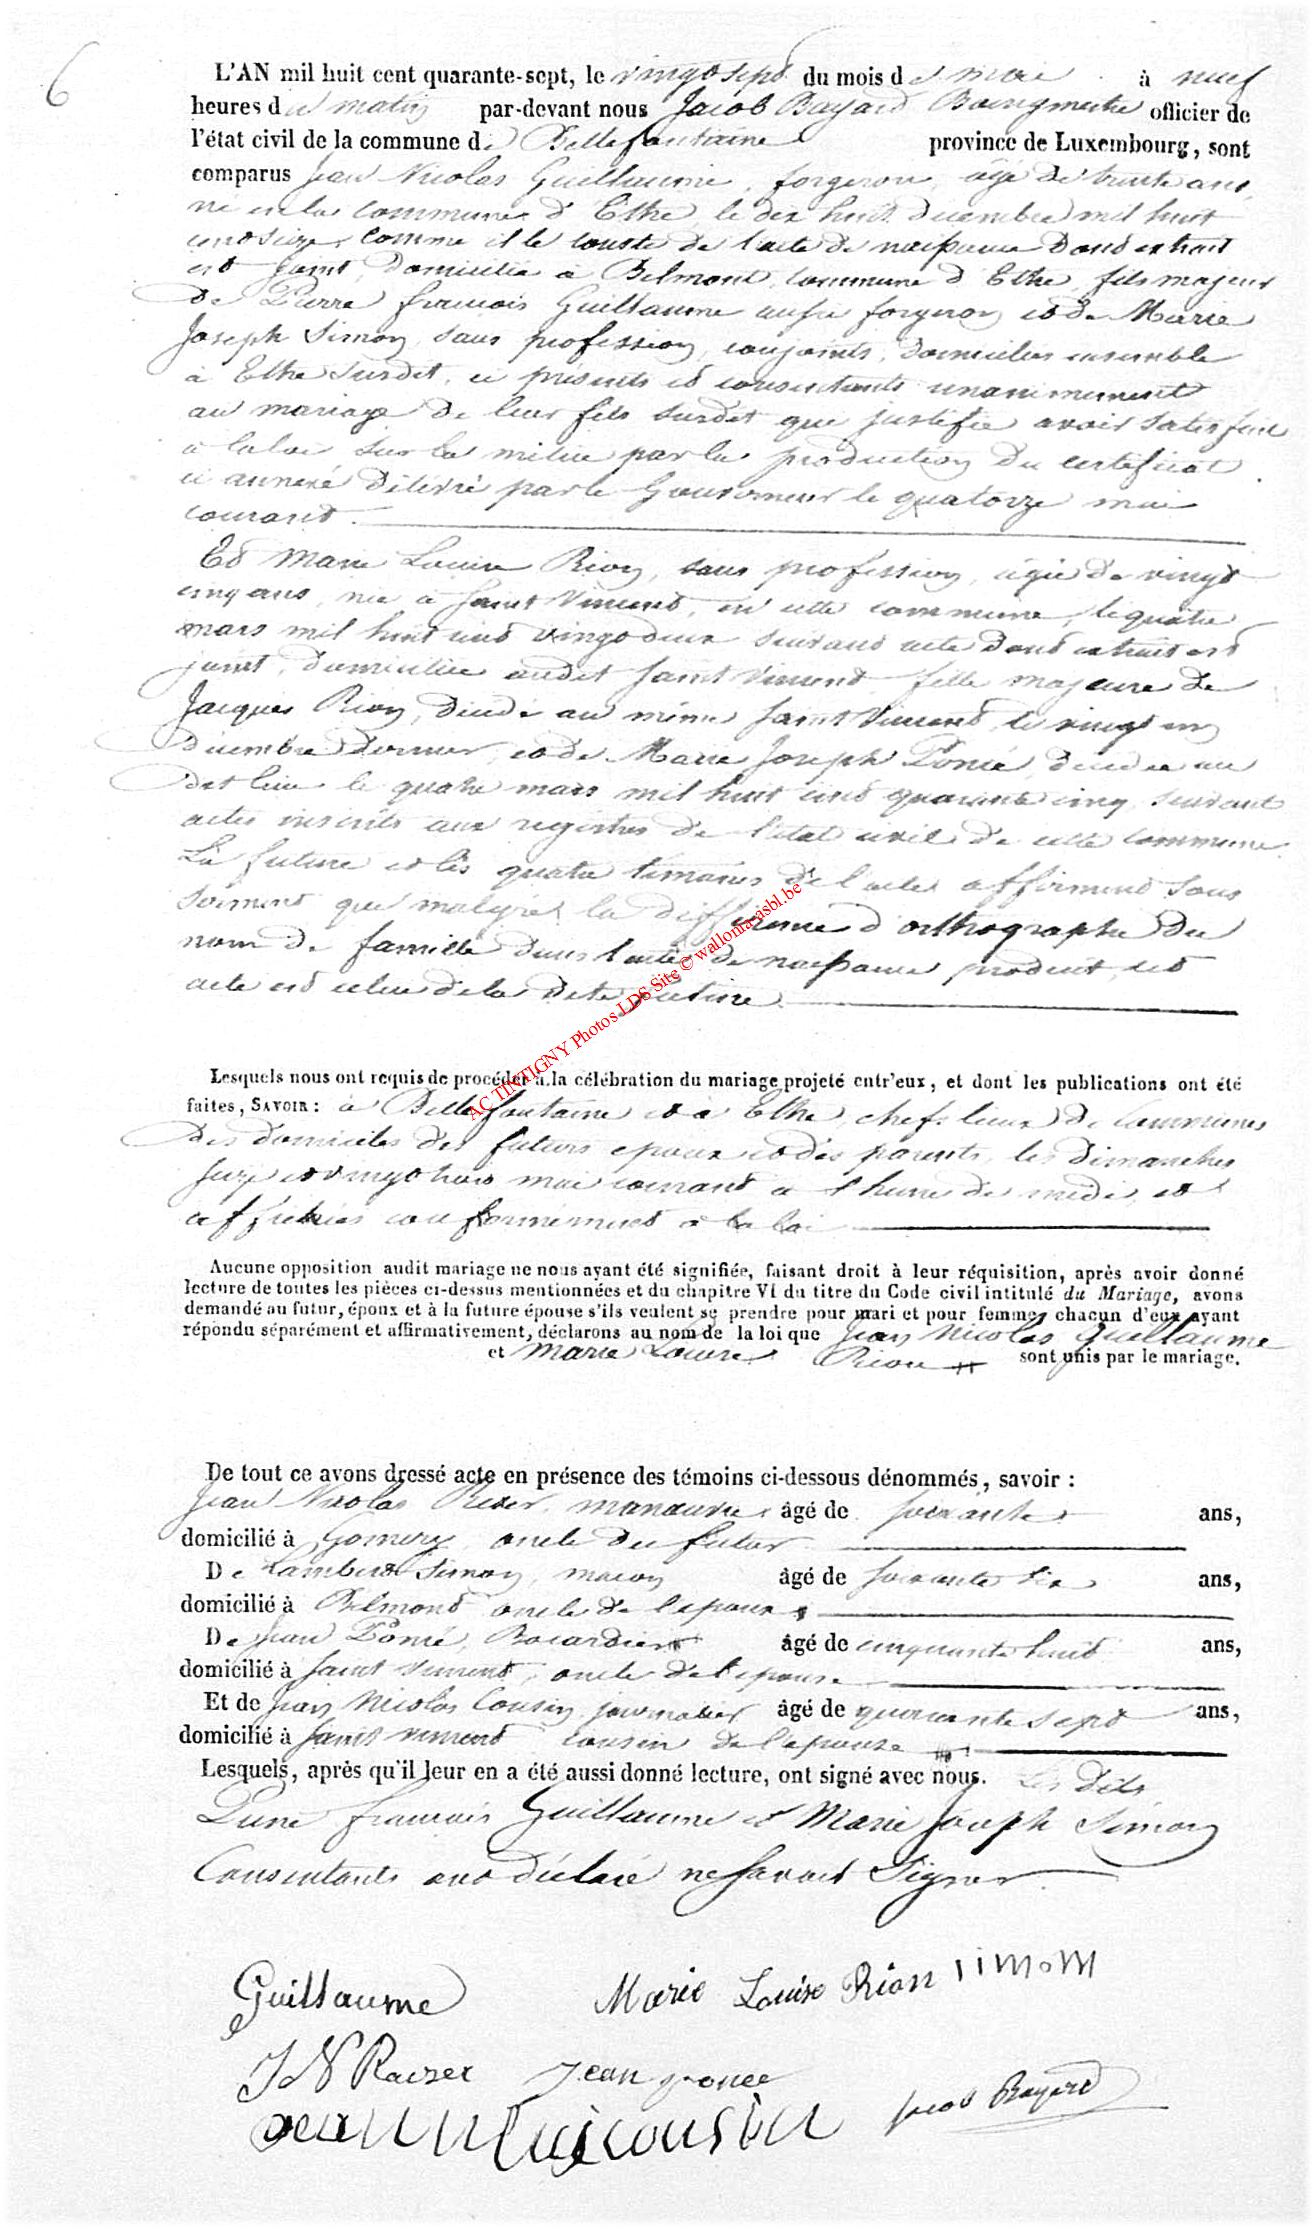 6
L'AN mil huit cent quarante-sept, le vingt sept du mois de mai à neuf
heures du matin par-devant nous Jacob Bayard Bourgmestre officier de
l'état civil de la commune de Bellefontaine province de Luxembourg, sont
comparus Jean Nicolas Guillaume, forgeron, âgé de trente ans,
né en la commune d'Ethe le dix huit décembre mil huit
cent seize, comme il le conste de l'acte de naissance dont extrait
est joint, domicilié à Belmont, commune d'Ethe, fils majeur
de Pierre françois Guillaume aussi forgeron et de Marie
Joseph Simon, sans profession, conjoints, domiciliés ensemble
à Ethe susdit, ci présents et consentants unanimement
au mariage de leur fils susdit que justifie avoir satisfait
à la loi sur la milice par la production du certificat
ci annexé délivré par le Gouverneur le quatorze mai
courant.
Et Marie Louise Rion, sans profession, âgée de vingt
cinq ans, née à Saint Vincent, en cette commune, le quatre
mars mil huit cent vingt deux suivant acte dont extrait est
joint, domiciliée audit Saint Vincent fille majeure de
Jacques Rion, décédé au même Saint Vincent, le vingt un
décembre dernier, et de Marie Joseph Poncé, décédée au
dit lieu le quatre mars mil huit cent quarante cinq, suivant
actes inscrits aux registres de l'état civil de cette commune
La future et les quatre témoins de l'acte affirment sous
serment que malgré la différence d'orthographe du
nom de famille dans l'acte de naissance produit, cet
acte est celui de la dite future.
ACTINTIGNY Photos LDS Site © wallonia-asbl.be
Lesquels nous ont requis de procéder à la célébration du mariage projeté entr'eux, et dont les publications ont été
faites, SAVOIR: à Bellefontaine et à Ethe, chefs lieux de communes
des domiciles des futurs époux et des parents, les dimanches
seize et vingt trois mai courant à l'heure de midi, et
affichées conformément à la loi
Aucune opposition audit mariage ne nous ayant été signifiée, faisant droit à leur réquisition, après avoir donné
lecture de toutes les pièces ci-dessus mentionnées et du chapitre VI du titre du Code civil intitulé du Mariage, avons
demandé au futur, époux et à la future épouse s'ils veulent se prendre pour mari et pour femme; chacun d'eux ayant
répondu séparément et affirmativement, déclarons au nom de la loi que Jean Nicolas Guillaume
et Marie Louise Rion sont unis par le mariage.
De tout ce avons dressé acte en présence des témoins ci-dessous dénommés, savoir :
Jean Nicolas manœuvre âgé de soixante ans,
domicilié à Gomery, oncle du futur
De Lambert Simon, maçon âgé de soixante six ans,
domicilié à Belmont oncle de l'époux
De Jean Poncé, âgé de cinquante huit ans,
domicilié à Saint Vincent, oncle de l'épouse
Et de Jean Nicolas Cousin journalier âgé de quarante sept ans,
domicilié à Saint Vincent cousin de l'épouse
Lesquels, après qu'il leur en a été aussi donné lecture, ont signé avec nous. Les dits
Pierre françois Guillaume et Marie Joseph Simon
Consentants ont déclaré ne savoir Signer
Guillaume Marie Louise Rion simon
J N Raeser Jean poncé
Jean cousin Jacob Bayard